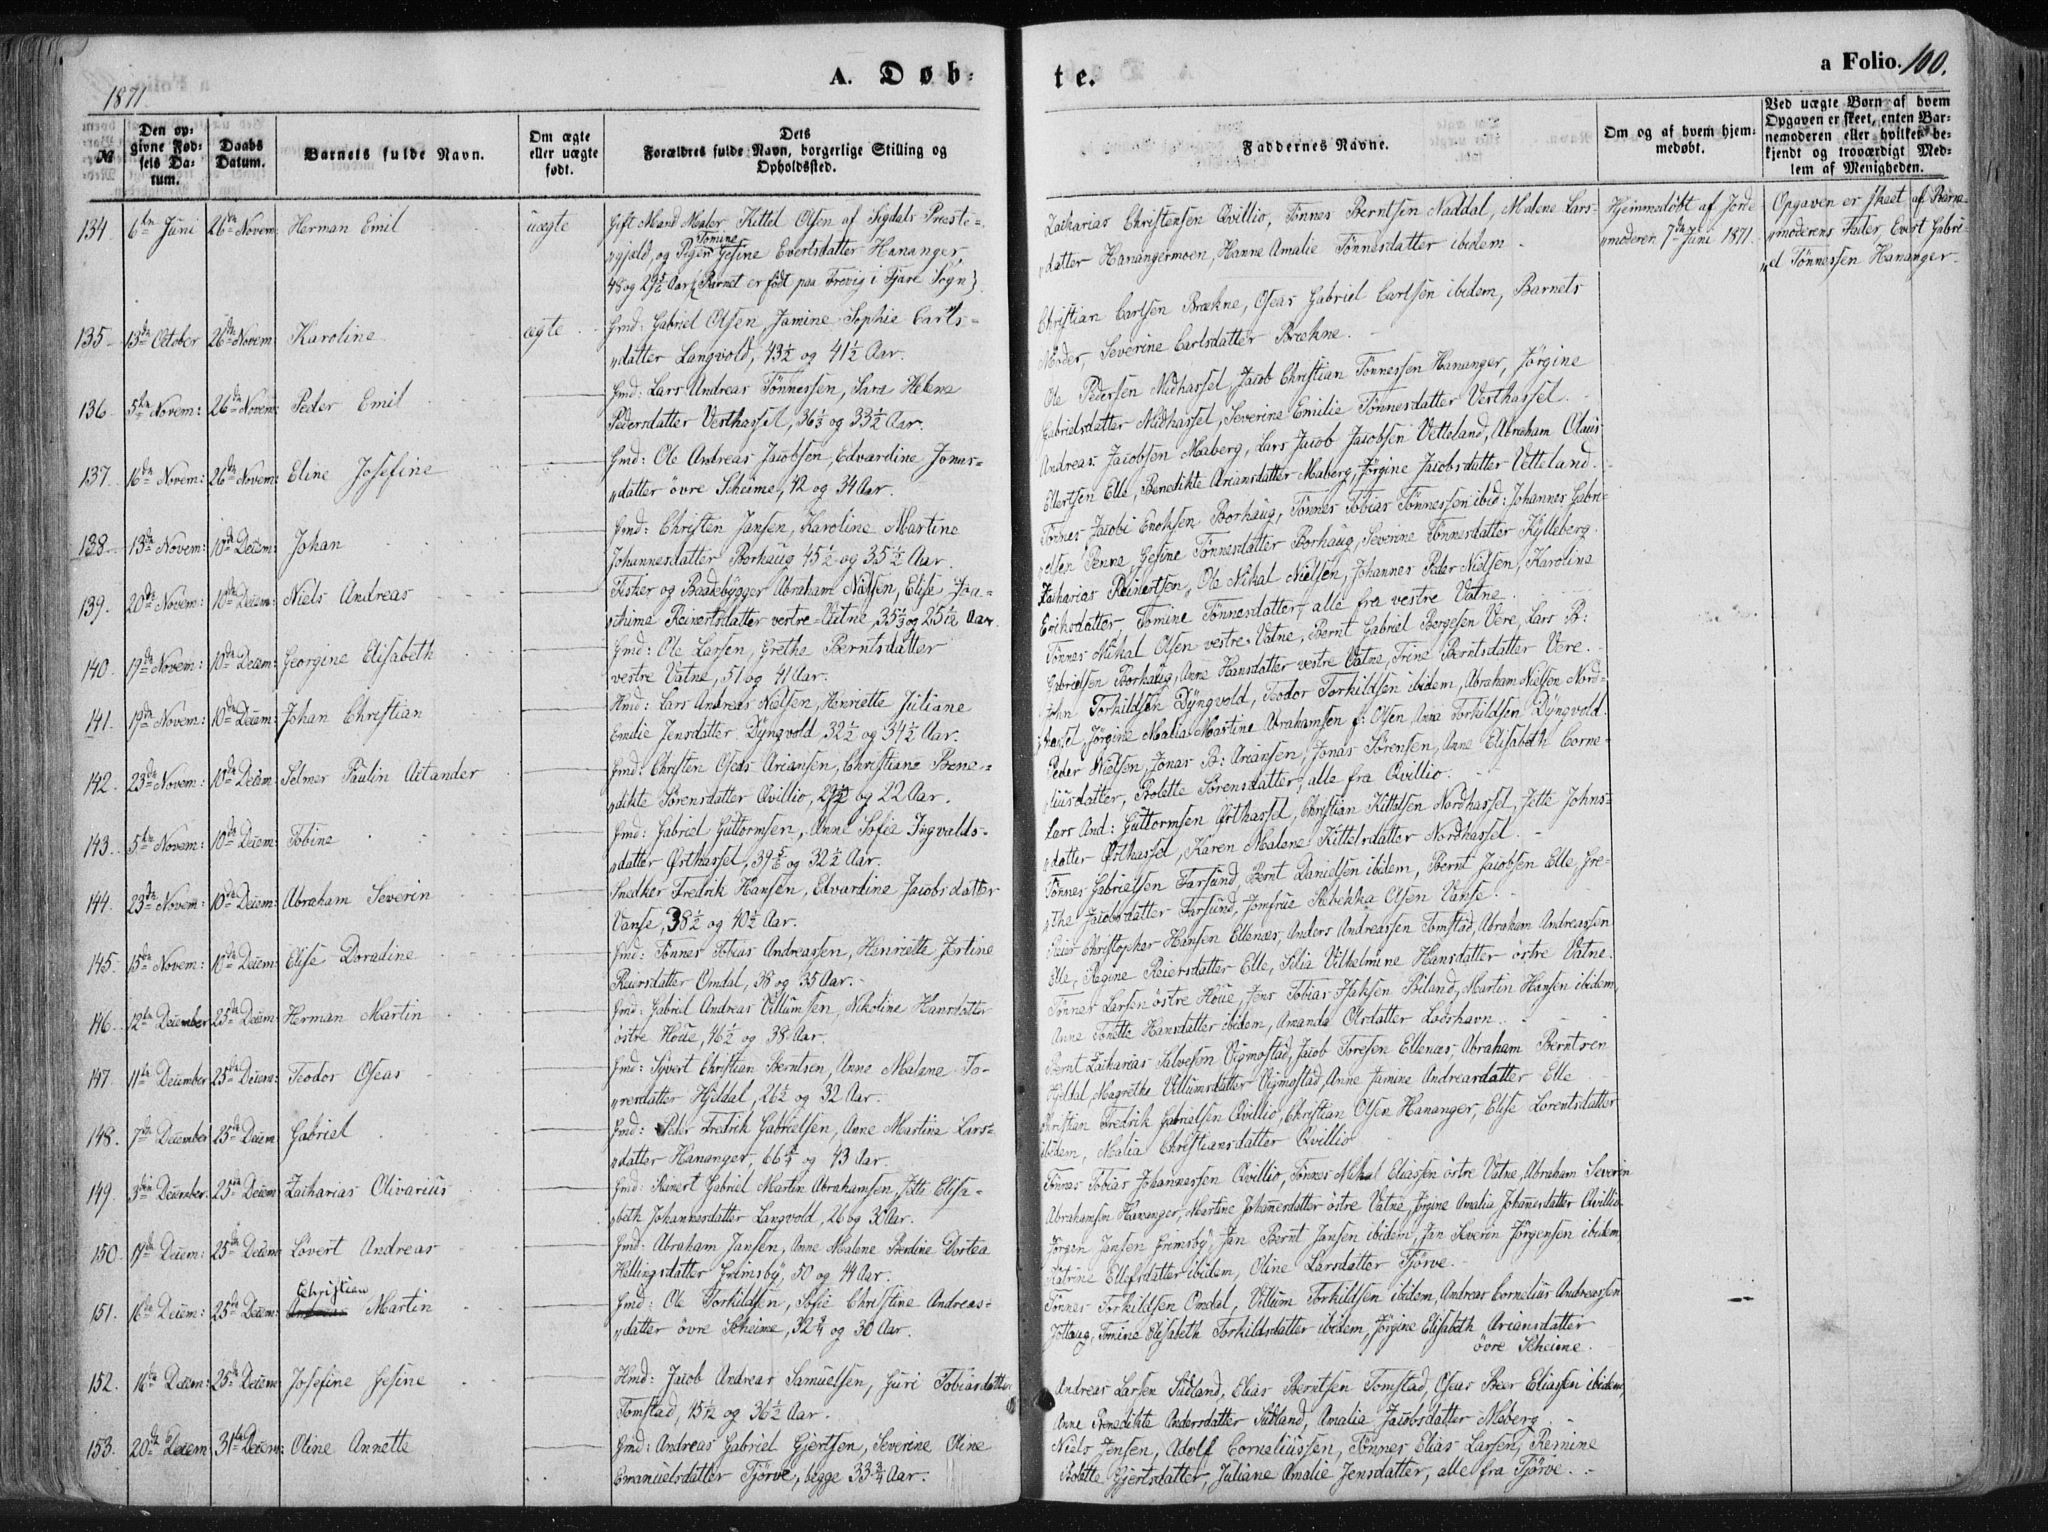 A. Døb-
te.
a Folio. 100.
1871
№
Den op-
givne Fød-
sels Da-
tum.
Daabs
Datum.
Barnets fulde Navn.
Om ægte
eller uægte
født.
Dets
Forældres fulde Navn, borgerlige Stilling og
Opholdssted.
Faddernes Navne.
Om og af hvem hjem-
medøbt.
Ved uægte Børn af hvem
Opgaven er skeet, enten Bar-
nemoderen eller hvilket be-
kjendt og troværdigt Med-
lem af Menigheden.
134 6te Juni 26de Novem: Herman Emil uægte Gift Mand Maler Kittel Olsen af Sigdals Præste-
gjæld, og Pigen Tomine Gesine Evertsdatter Hananger,
48 og 29 5/6 Aar (Barnet er født paa Trevig i Fjære Sogn).
Zacharias Christensen Qvillio, Tønnes Berntsen Naddal, Malene Lars-
datter Hanangermoen, Hanne Amalie Tønnesdatter ibidem.
Hjemmedøbt af Jorde-
moderen 7de Juni 1871.
Opgaven er skeet af Barne-
moderens Fader, Evert Gabri-
el Tønnessen Hananger.
135 13de October 26de Novem: Karoline ægte Gmd: Gabriel Olsen, Jamine Sophie Carls-
datter Langvold, 43½ og 41½ Aar.
Christian Carlsen Brekne, Oseas Gabriel Carlsen ibidem, Barnets
Moder, Severine Carlsdatter Brekne.
136 5te Novem: 26de Novem: Peder Emil Gmd: Lars Andreas Tønnessen, Sara Helene
Pedersdatter Vesthassel, 36⅓ og 33½ Aar.
Ole Pedersen Midhassel, Jacob Christian Tønnessen Hananger, Jørgine
Gabrielsdatter Midhassel, Severine Emilie Tønnesdatter Vesthassel.
137. 16de Novem: 26de Novem: Eline Josefine Gmd: Ole Andreas Jacobsen, Edvardine Jonas-
datter øvre Scheime, 42 og 34 Aar.
Andreas Jacobsen Maberg, Lars Jacob Jacobsen Vetteland, Abraham Olaus
Ellertsen Elle, Benedikte Ariansdatter Maberg, Jørgine Jacobsdatter Vetteland.
138 13de Novem: 10de Decem: Johan Gmd: Christen Jansen, Karoline Martine
Johannesdatter Borhaug 45½ og 35½ Aar.
Tønnes Jacobi Enoksen Borhaug, Tønnes Tobias Tønnessen ibid: Johannes Gabri-
elsen Penne, Gesine Tønnesdatter Borhaug, Severine Tønnesdatter Kylleberg.
139. 20de Novem: 10de Decem: Niels Andreas Fisker og Baadebygger Abraham Nielsen, Elise Joa-
chime Reinertsdatter vestre Vatne, 35⅓ og 25 1/12 Aar.
Zacharias Reinertsen, Ole Mikal Nielsen, Johannes Peder Nielsen, Karoline
Eriksdatter, Tomine Tønnesdatter, alle fra vestre Vatne.
140. 19de Novem: 10de Decem: Georgine Elisabeth Gmd: Ole Larsen, Grethe Berntsdatter
vestre Vatne, 51 og 41 Aar.
Tønnes Mikal Olsen vestre Vatne, Bernt Gabriel Børgesen Vere, Lars B:
Gabrielsen Borhaug, Anne Hansdatter vestre Vatne, Trine Berntsdatter Vere.
141. 19de Novem: 10de Decem: Johan Christian Hmd: Lars Andreas Nielsen, Henriette Juliane
Emilie Jensdatter, Dyngvold, 32½ og 34½ Aar.
John Torkildsen Dyngvold, Teodor Torkildsen ibidem, Abraham Nielsen Nord-
hassel, Jørgine Malia Martine Abrahamsen f: Olsen, Anna Torkildsen Dyngvold.
142. 23de Novem: 10de Decem: Selmer Paulin Aitander Gmd: Christen Oseas Ariansen, Christiane Bene-
dikte Sørensdatter Qvillio, 29½ og 22 Aar.
Peder Nielsen, Jonas B: Ariansen, Jonas Sørensen, Anne Elisabeth Corne-
liusdatter, Bolette Sørensdatter, alle fra Qvillio.
143. 5te Novem: 10de Decem: Tobine Gmd: Gabriel Guttormsen, Anne Sofie Ingvalds-
datter Østhassel, 39 5/6 og 32½ Aar.
Lars And: Guttormsen Østhassel, Christian Kittelsen Nordhassel, Jette Johns-
datter Østhassel, Karen Malene Kittelsdatter Nordhassel.
144. 23de Novem: 10de Decem: Abraham Severin Snedker Fredrik Hansen, Edvardine Jacobsdatter
Vanse, 38½ og 40½ Aar.
Tønnes Gabrielsen Farsund, Bernt Danielsen ibidem, Bernt Jacobsen Elle, Gre-
the Jacobsdatter Farsund, Jomfrue Rebekka Olsen Vanse.
145. 15de Novem: 10de Decem: Elise Doradine Gmd: Tønnes Tobias Andreassen, Henriette Jertine
Reiersdatter Omdal, 38 og 35 Aar.
Reier Christopher Hansen Ellenæs, Anders Andreassen Tomstad, Abraham Andreassen
Elle, Regine Reiersdatter Elle, Silia Vilhelmine Hansdatter østre Vatne.
146 12te December 25de Decem: Herman Martin Gmd: Gabriel Andreas Villumsen, Nikoline Hansdatter
østre Houe, 46½ og 38 Aar.
Tønnes Larsen østre Houe, Jens Tobias Isaksen Biland, Martin Hansen ibidem,
Anne Tonette Hansdatter ibidem, Amanda Olsdatter Loshavn.
147 11te December 25de Decem: Teodor Oseas Gmd: Syvert Christian Berntsen, Anne Malene To-
resdatter Hjildal, 26½ og 32 Aar.
Bernt Zacharias Salvesen Vigmostad, Jacob Toresen Ellenæs, Abraham Berntsen
Hjildal, Magrethe Villumsdatter Vigmostad, Anne Jamine Andreasdatter Elle
148. 7de December 25de Decem Gabriel Gmd: Peder Fredrik Gabrielsen, Anne Martine Lars-
datter Hananger, 66¾ og 43 Aar.
Christian Fredrik Gabrielsen Qvillio, Christian Olsen Hananger, Elise Lorentsdatter
ibidem, Malia Christiansdatter Qvillio
149. 3die December 25de Decem Zacharias Olivarius Gmd: Reinert Gabriel Martin Abrahamsen, Jitta Elisa-
beth Johannesdatter Langvold, 26 og 30 Aar.
Tønnes Tobias Johannessen Qvillio, Tønnes Mikal Eliassen østre Vatne, Abraham Severin
Abrahamsen Hananger, Martine Johannesdatter østre Vatne, Jørgine Amalia Johannesdatter Qvillio.
150. 17de Decem: 25de Decem: Lovert Andreas Gmd: Abraham Jansen, Anne Malene Berdine Dortea
Hellingsdatter Grimsby, 50 og 44 Aar.
Jørgen Jansen Grimsby, Jan Bernt Jansen ibidem, Jan Severin Jørgensen ibidem,
Katrine Ellefsdatter ibidem, Oline Larsdatter Tjørve.
151. 16de Decem: 25de Decem: Christian Martin Gmd: Ole Torkildsen, Sofie Christine Andreas-
datter øvre Scheime, 32¾ og 30 Aar.
Tønnes Torkildsen Omdal, Villum Torkildsen ibidem, Andreas Cornelius Andreassen
Jottaug, Tomine Elisabeth Torkildsdatter ibidem, Jørgine Elisabeth Ariansdatter
øvre Scheime.
152. 16de Decem: 25de Decem: Josefine Gesine Hmd: Jacob Andreas Samuelsen, Guri Tobiasdatter
Tomstad, 45 1/12 og 36½ Aar.
Andreas Larsen Sudland, Elias Berntsen Tomstad, Oseas Beer Eliassen ibidem,
Anne Benedikte Andersdatter Sudland, Amalia Jacobsdatter Meberg.
153. 20de Decem 31te Decem: Oline Annette Gmd: Andreas Gabriel Gjertsen, Severine Oline
Emanuelsdatter Tjørve, begge 33¾ Aar.
Niels Jensen, Adolf Corneliussen, Tønnes Elias Larsen, Remine
Bolette Gjertsdatter, Juliane Amalie Jensdatter, alle fra Tjørve.